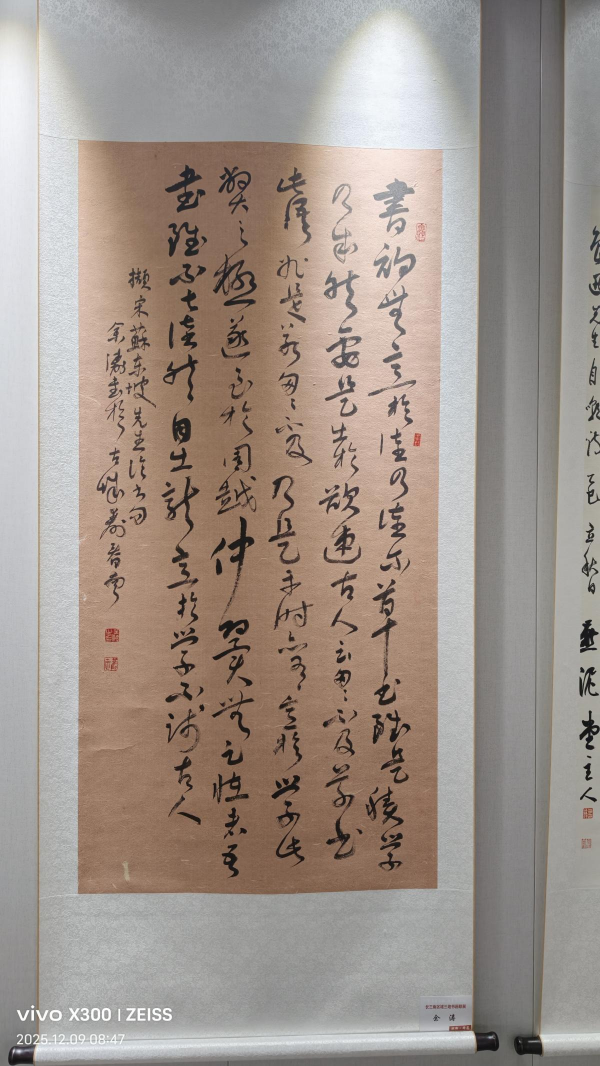 書初無意於佳乃佳尔草书雖是積學
乃成然要是出於欲速古人云匆匆不及草书
此語非是若匆匆不及乃是平时亦有意於學此
弊之極遂至於周越仲翼無足怪者吾
書雖不甚佳然自出新意於學不踐古人
擬宋蘇东坡先生论书句
余濤書於古城
先生自 立秋日 堂主人
余涛
vivo X300 | ZEISS
2025.12.09 08:47